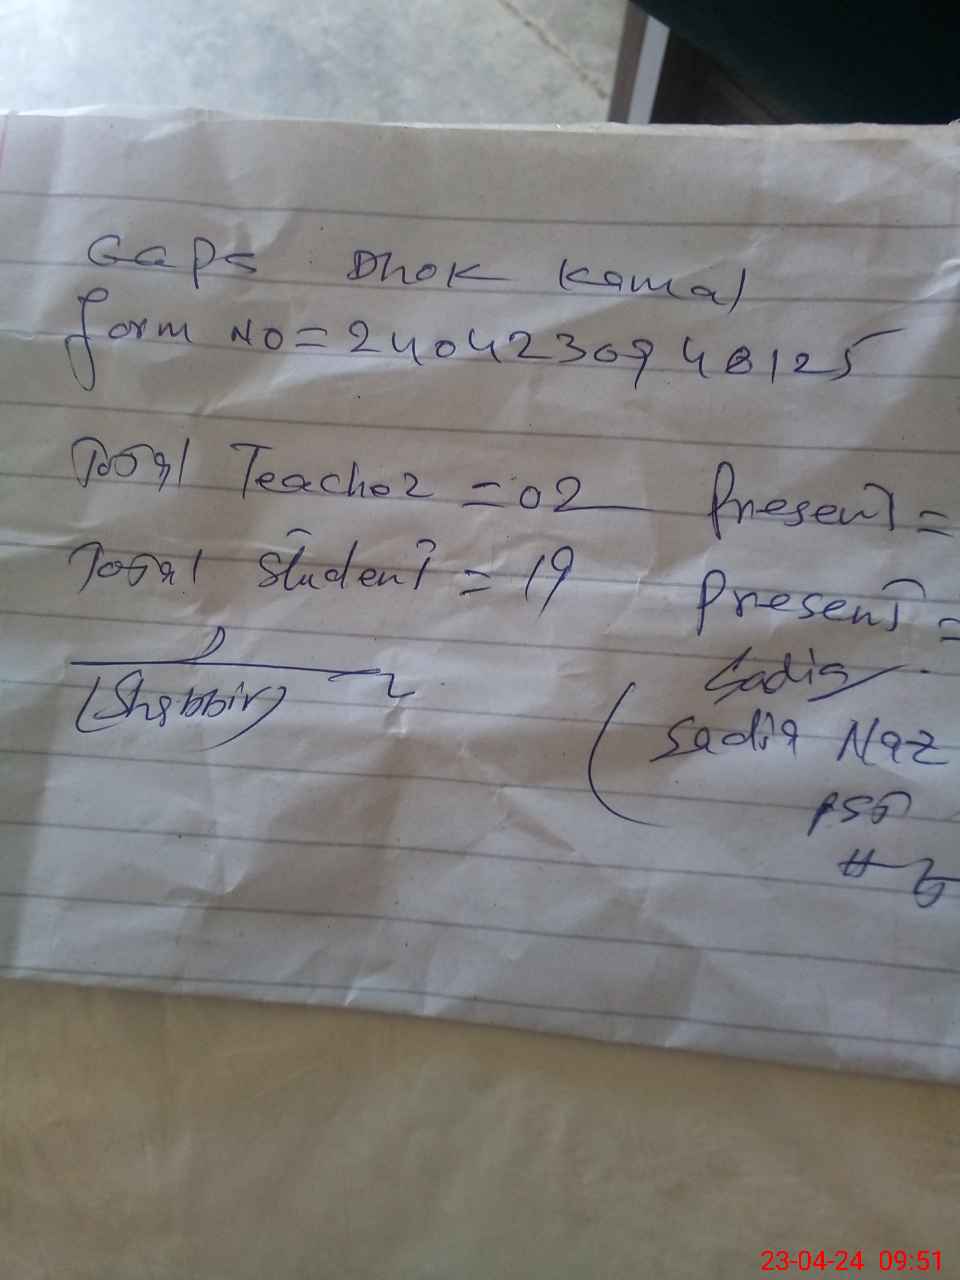 GGPS Dhok Kamal
Form NO = 2404230948125
Total Teacher = 02 Present =
Total Student = 19 Present =
Sadia
(Shabbir)
(Sadia Naz
PST
23-04-24 09:51